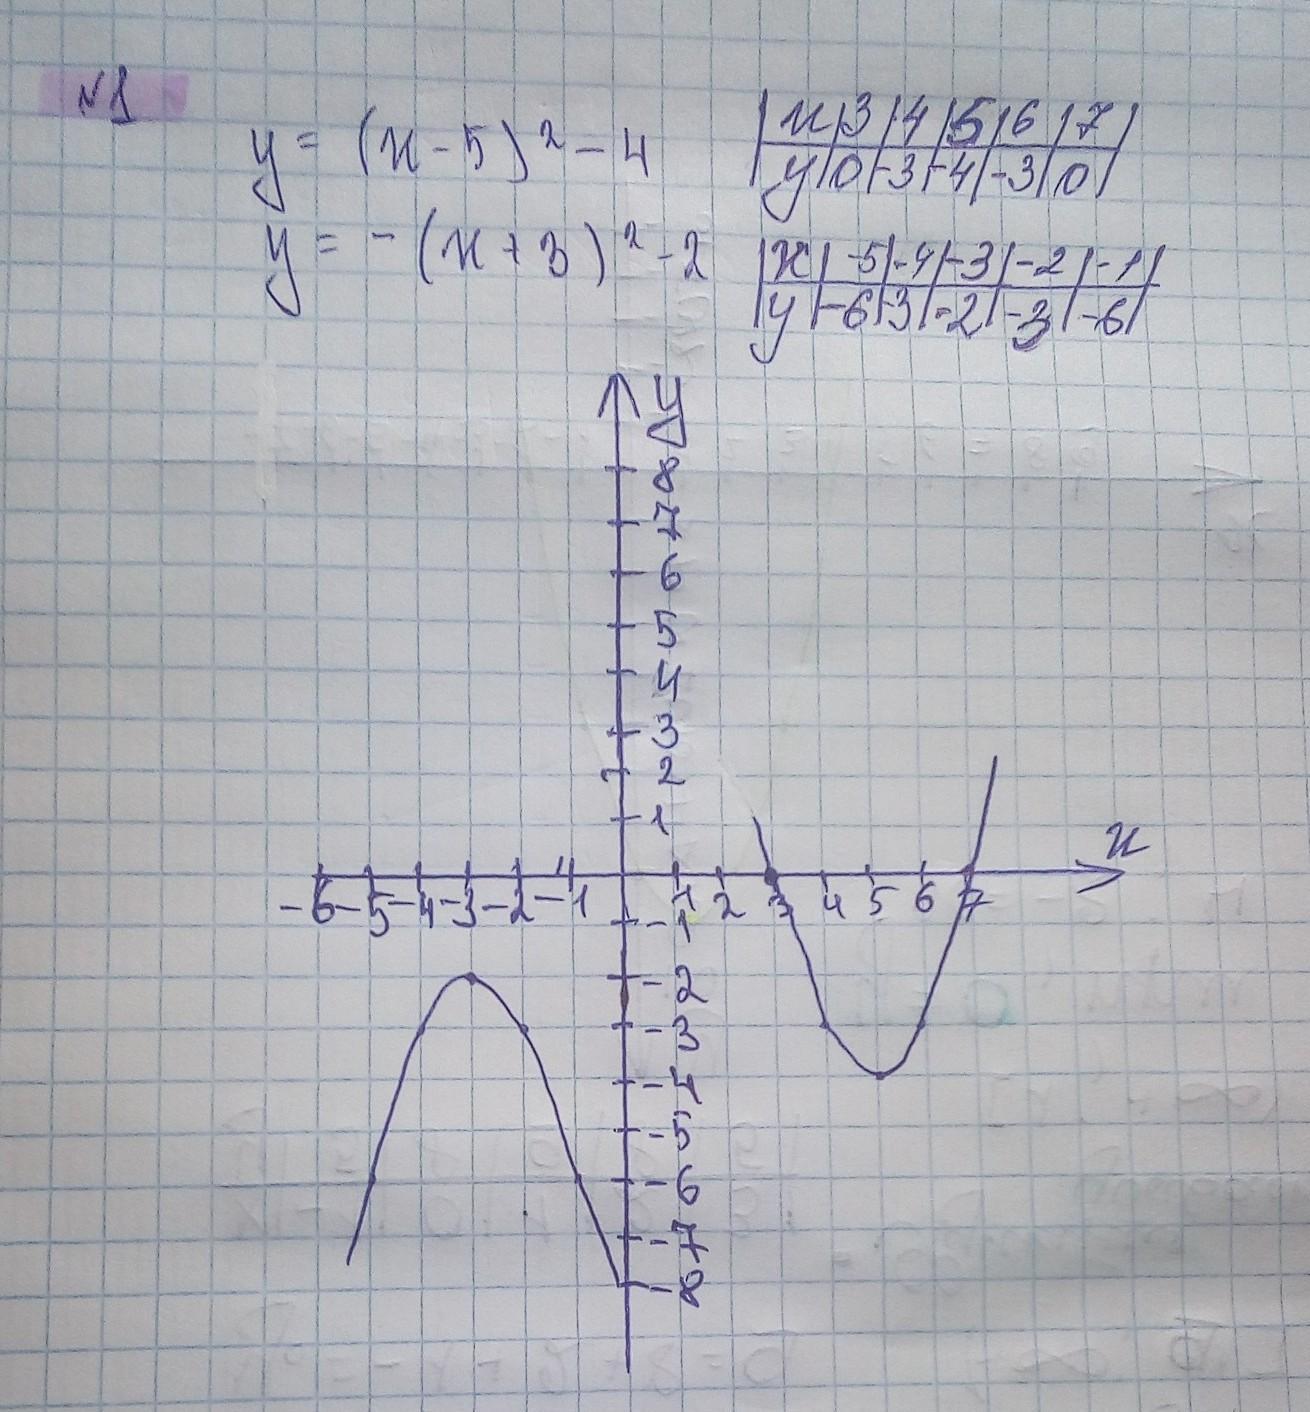 №1
y = (x - 5)² - 4
|x|3|4|5|6|7|
|y|0|-3|-4|-3|0|
y = -(x + 3)² - 2
|x|-5|-4|-3|-2|-1|
|y|-6|-3|-2|-3|-6|
y
8
7
6
5
4
3
2
1
x
-6 -5 -4 -3 -2 -1 1 2 3 4 5 6 7
-1
-2
-3
-4
-5
-6
-7
-8